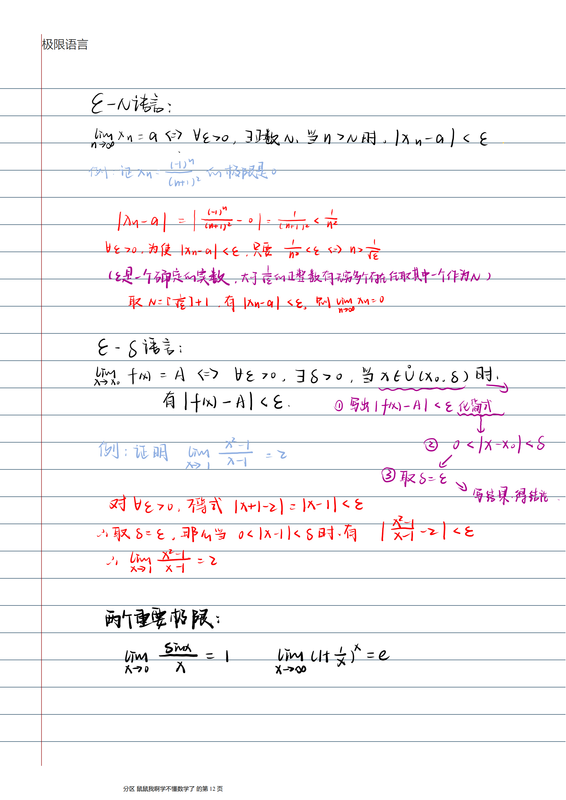 极限语言
ε-N语言:
lim n→∞ xn = a <=> ∀ε>0, ∃正整数N, 当n>N时, |xn-a|<ε
例: 证xn = (-1)^n/(n+1)^2 的极限是0
|xn-a| = |(-1)^n/(n+1)^2 - 0| = 1/(n+1)^2 < 1/n^2
∀ε>0, 为使|xn-a|<ε, 只要 1/n^2<ε <=> n>1/√ε
(ε是一个确定的实数, 大于1/√ε的正整数有无穷多个存在任取其中一个作为N)
取N=[1/√ε]+1, 有|xn-a|<ε, 则 lim n→∞ xn=0
ε-δ语言:
lim x→x0 f(x) = A <=> ∀ε>0, ∃δ>0, 当x∈Ů(x0,δ)时,
有|f(x)-A|<ε.
①写出|f(x)-A|<ε 化简式
② 0<|x-x0|<δ
③取δ=ε
写结果 得结论
例: 证明 lim x→1 x^2-1/x-1 = 2
对∀ε>0, 不等式 |x+1-2|=|x-1|<ε
∴取δ=ε, 那么当 0<|x-1|<δ时,有 |x^2-1/x-1 - 2|<ε
∴ lim x→1 x^2-1/x-1 = 2
两个重要极限:
lim x→0 sinx/x = 1 lim x→∞ (1+1/x)^x = e
分区 鼠鼠我啊学不懂数学了 的第 12 页